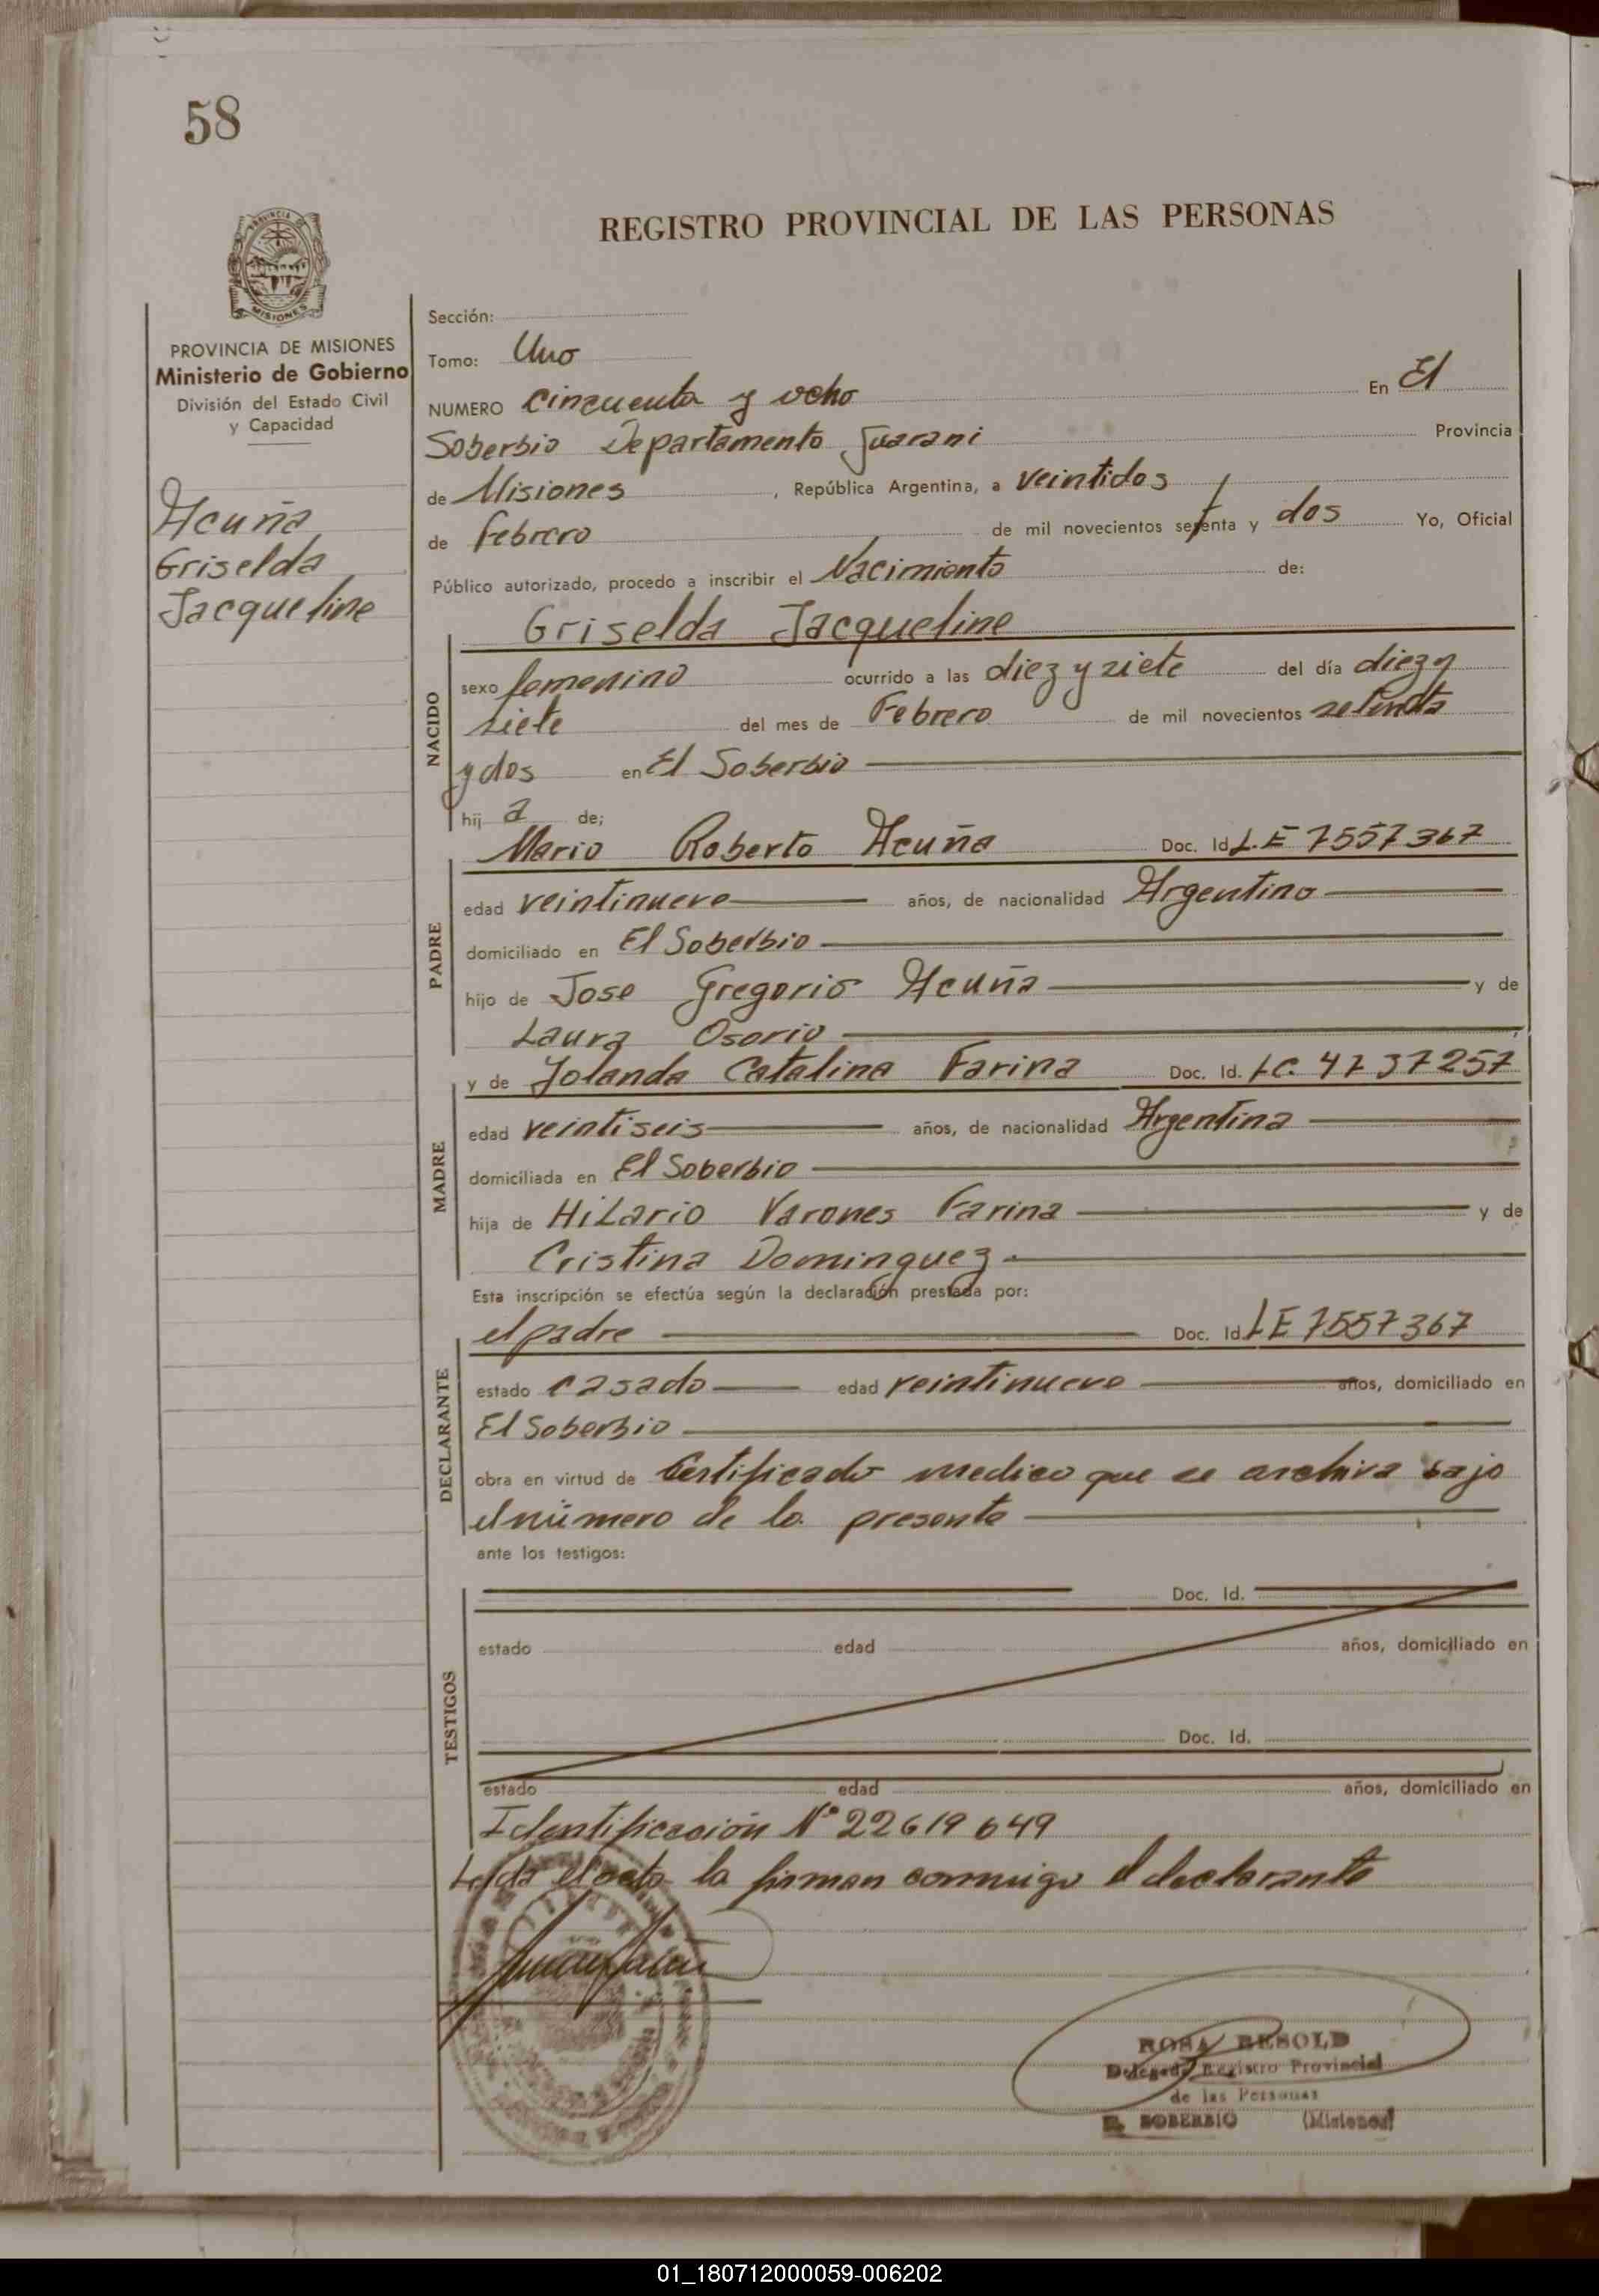 58
REGISTRO PROVINCIAL DE LAS PERSONAS
PROVINCIA DE MISIONES
MISIONES
PROVINCIA DE MISIONES
Ministerio de Gobierno
División del Estado Civil
y Capacidad
Acuña
Griselda
Jacqueline
Sección:
Tomo: Uno
NUMERO cincuenta y ocho En El
Soberbio Departamento Guarani Provincia
de Misiones, República Argentina, a veintidos
de febrero de mil novecientos setenta y dos Yo, Oficial
Público autorizado, procedo a inscribir el Nacimiento de:
Griselda Jacqueline
NACIDO
sexo femenino ocurrido a las diez y siete del día diez y
siete del mes de Febrero de mil novecientos setenta
y dos en El Soberbio
hij a de;
Mario Roberto Acuña Doc. Id L.E 7557367
PADRE
edad veintinueve años, de nacionalidad Argentino
domiciliado en El Soberbio
hijo de Jose Gregorio Acuña y de
Laura Osorio
y de Yolanda Catalina Farina Doc. Id. LC. 4737257
MADRE
edad veintiseis años, de nacionalidad Argentina
domiciliada en El Soberbio
hija de Hilario Varones Farina y de
Cristina Dominquez
Esta inscripción se efectúa según la declaración prestada por:
el padre Doc. Id LE 7557367
DECLARANTE
estado casado edad veintinueve años, domiciliado en
El Soberbio
obra en virtud de Certificado medico que se archiva bajo
el número de la presente
ante los testigos:
TESTIGOS
Doc. Id.
estado edad años, domiciliado en
Doc. Id.
estado edad años, domiciliado en
Identificación Nº 22619649
Leida el acta la firman conmigo el declarante
ROSA RESOLD
Delegada Registro Provincial
de las Personas
EL SOBERBIO (Misiones)
01_180712000059-006202